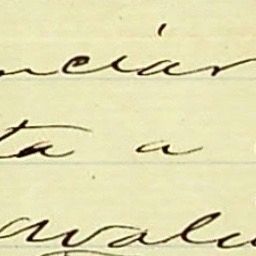 nciar
ta a
avalu